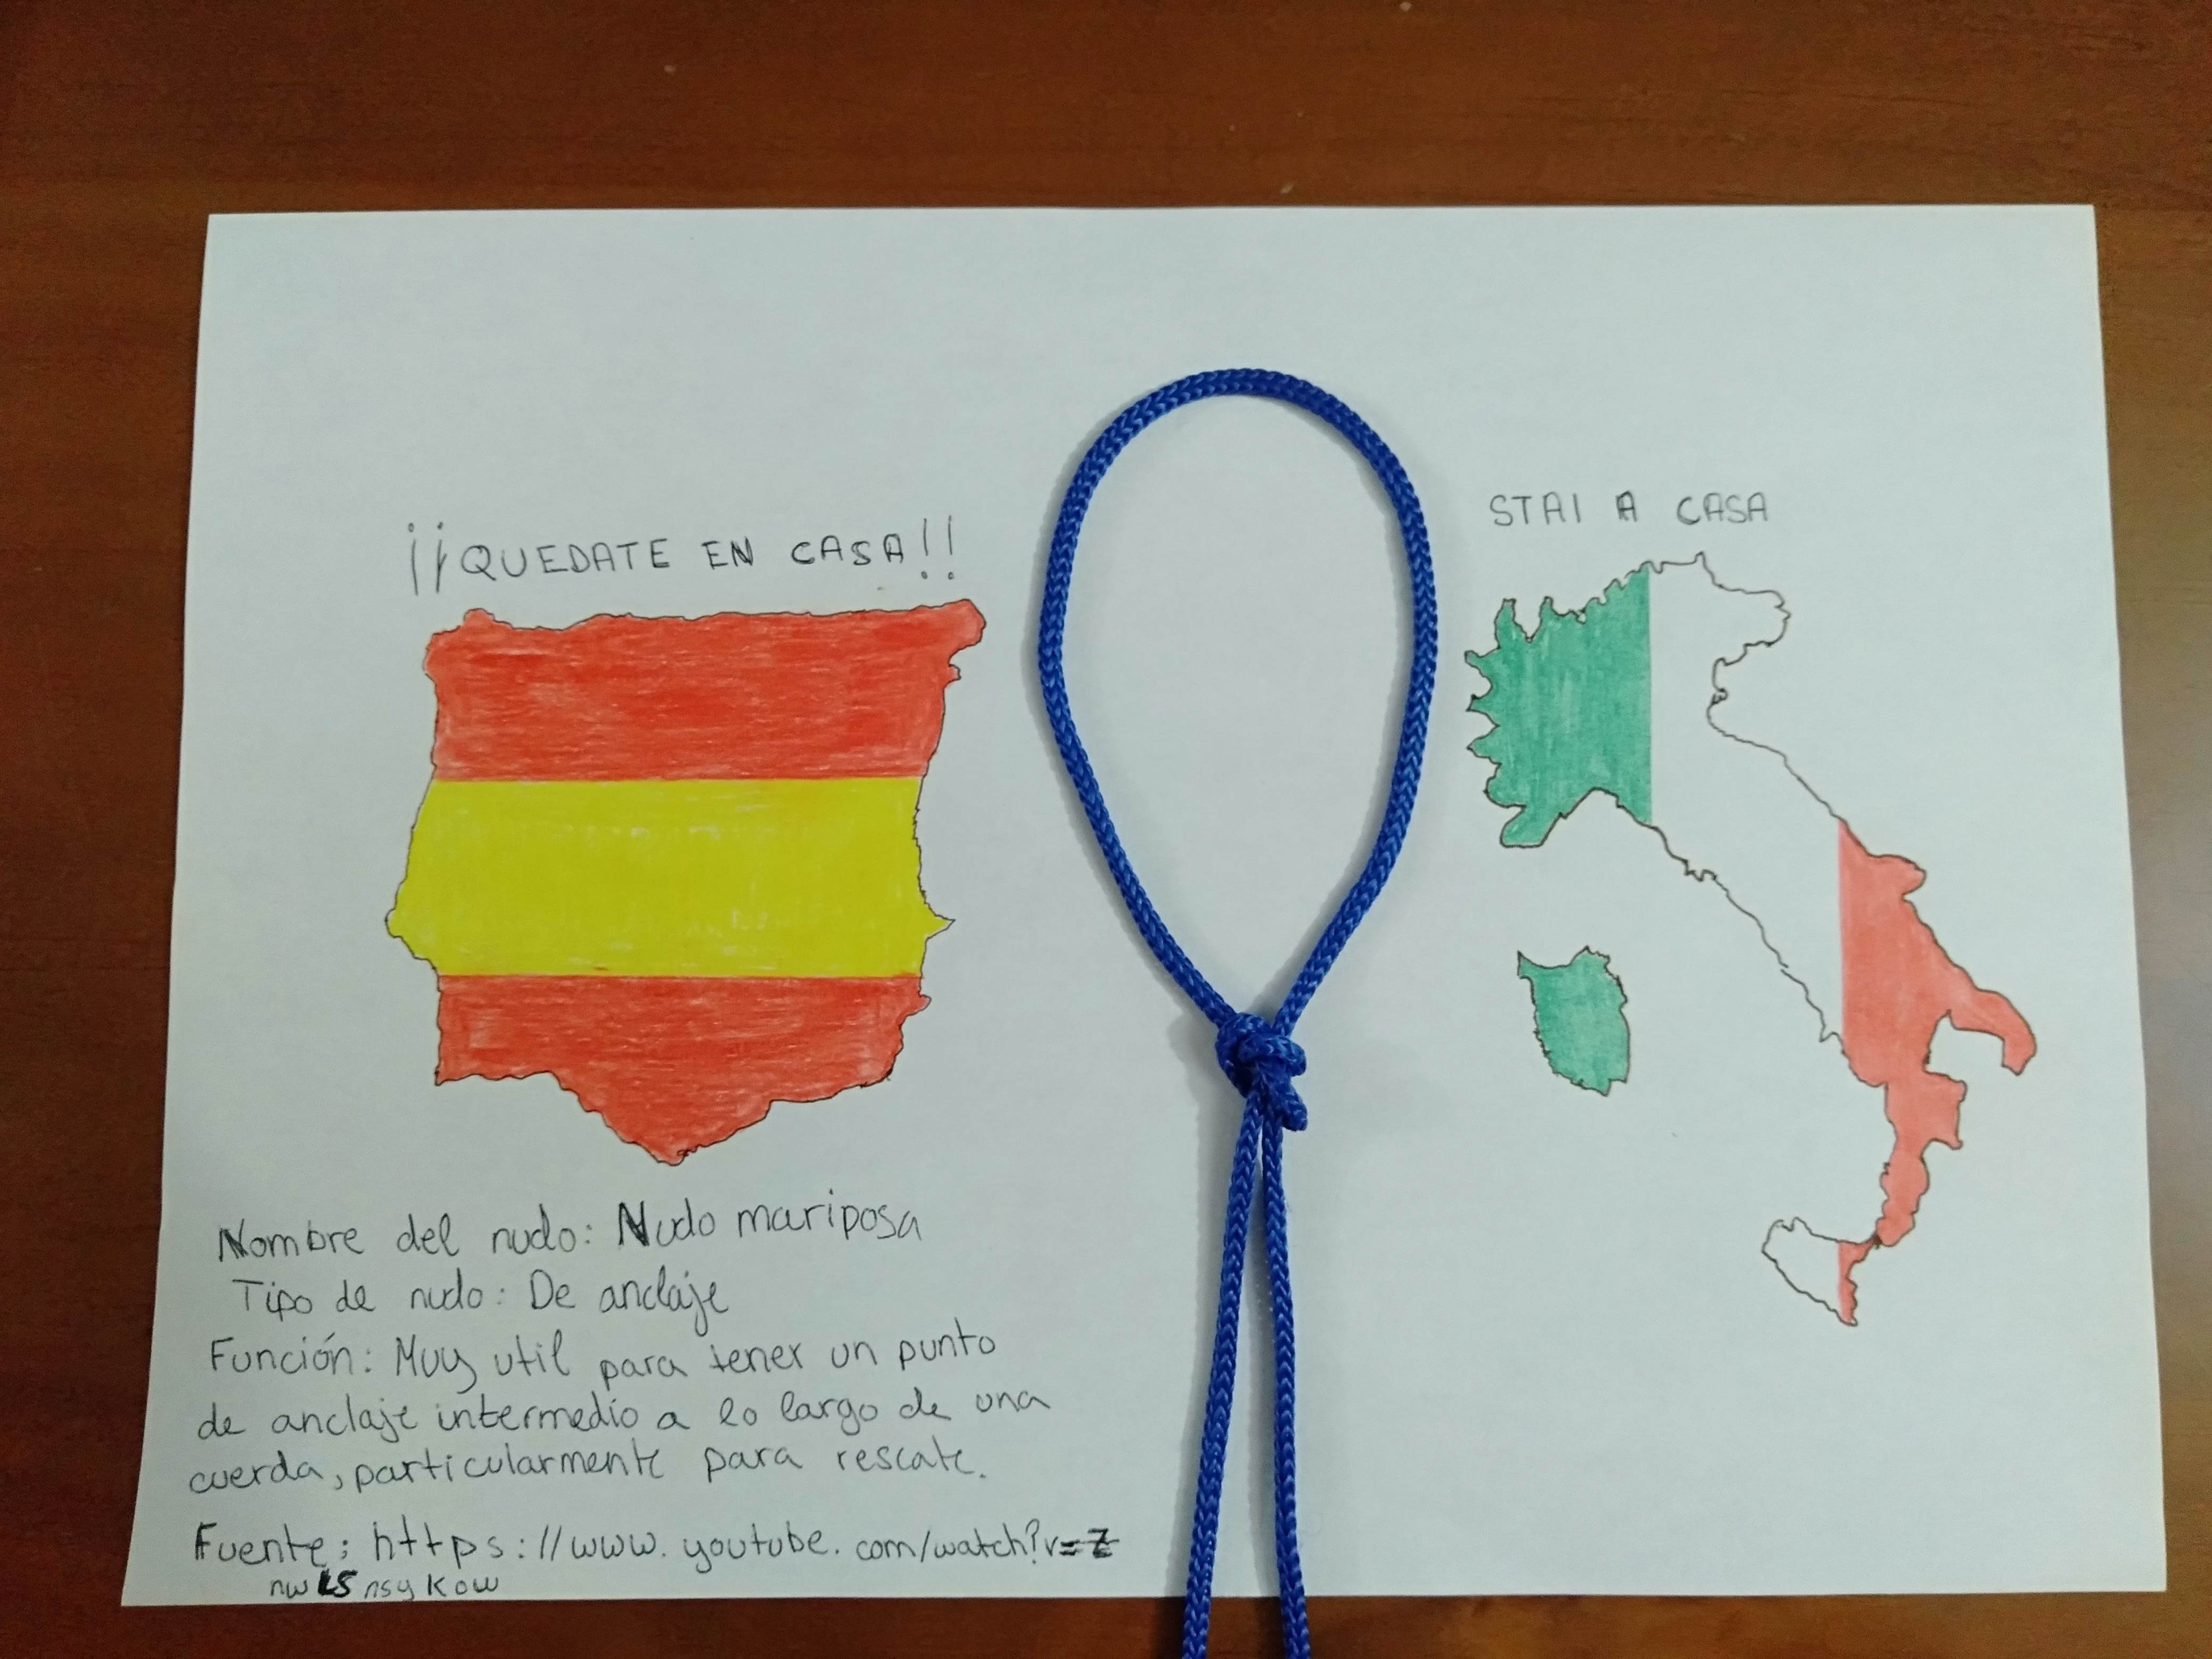 ¡¡QUEDATE EN CASA!!
STAI A CASA
Nombre del nudo: Nudo mariposa
Tipo de nudo: De anclaje
Función: Muy util para tener un punto
de anclaje intermedio a lo largo de una
cuerda, particularmente para rescate.
Fuente: https://www.youtube.com/watch?v=Z
nwLSnsykow